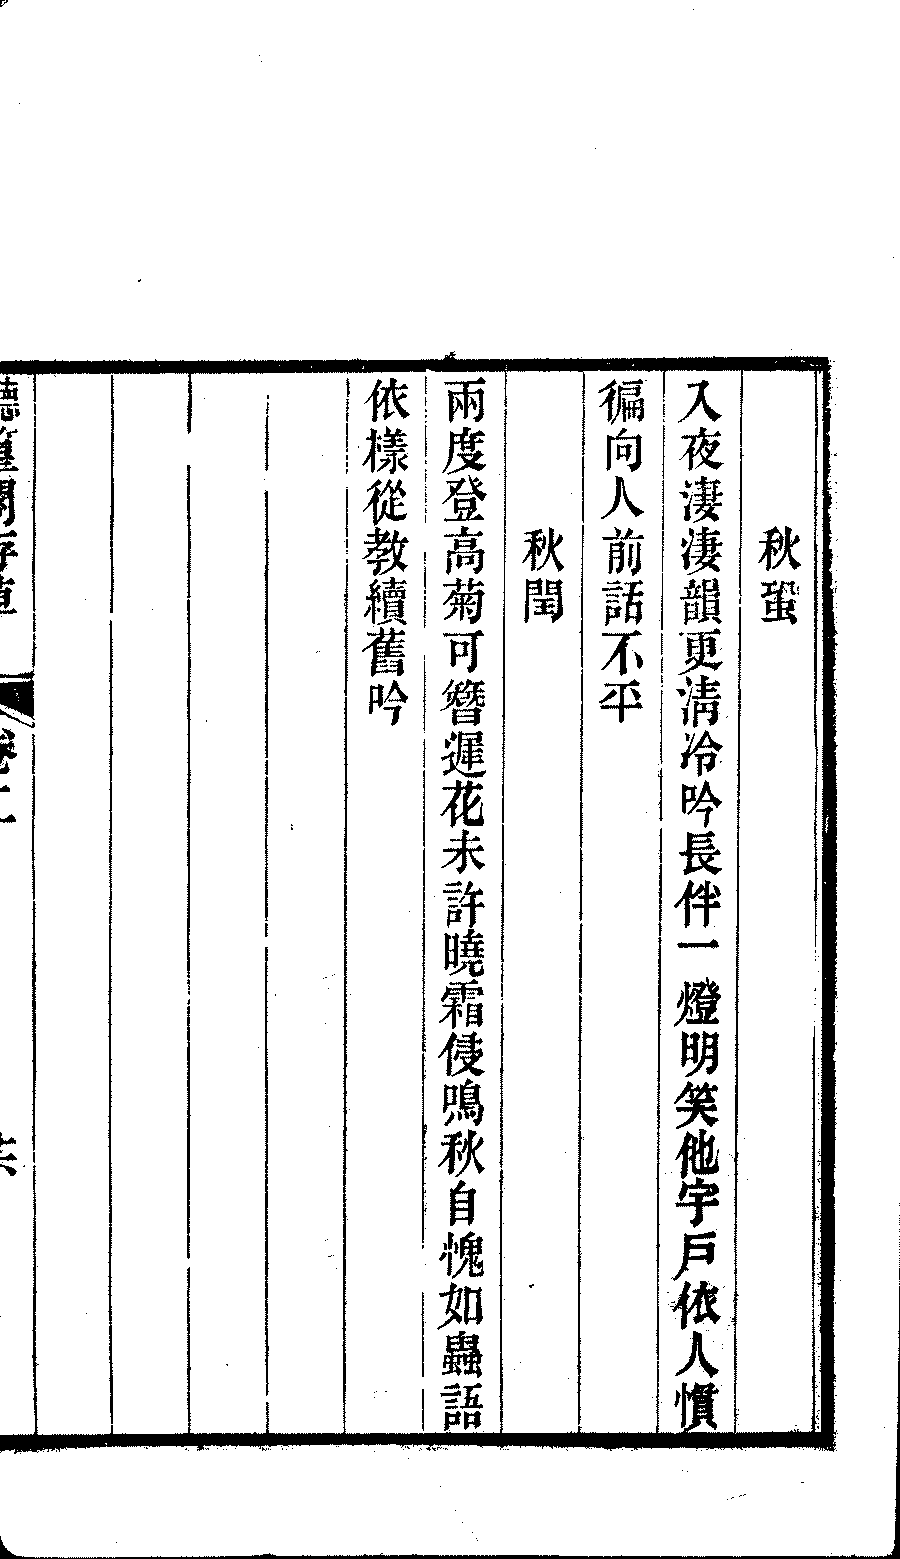 秋蛩
入夜淒淒韻更清冷吟長伴一燈明笑他宇戶依人慣
徧向人前話不平
秋閏
兩度登高菊可簪遲花未許曉霜侵鳴秋自愧如蟲語
依樣從教續舊吟
卷二